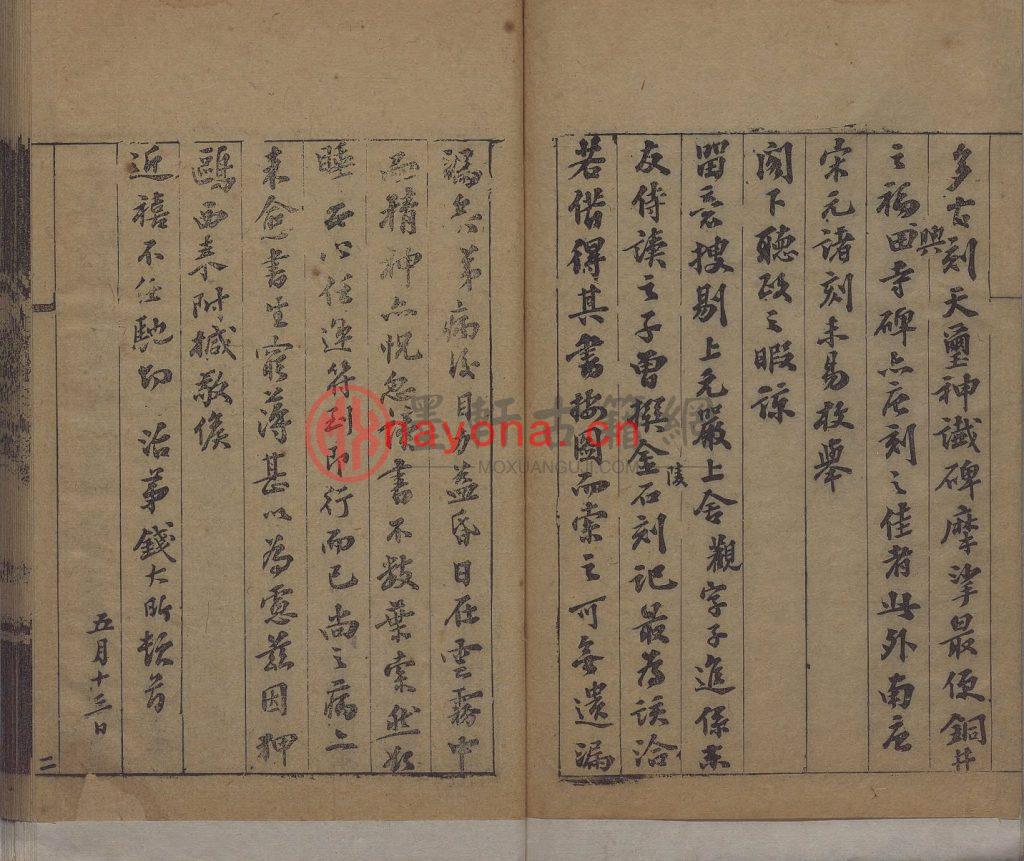 多古刻天璽神讖碑摩挲最便銅井
之福興田寺碑亦唐刻之佳者此外南唐
宋元諸刻未易枚舉
閣下聽政之暇諒
留意搜剔上元嚴上舍觀字子進係東
友侍讀之子曾撰金陵石刻記最為該洽
若借得其書按圖而索之可無遺漏
弟病後目力益昏日在雲霧中
而精神亦恍忽讀書不數葉索然欲
睡 任運符到即行而已尚之病二
来愈書生窮薄甚以為慮茲因
鷗西奉附緘敬候
近禧不任馳切 治弟錢大昕頓首
五月十三日
二
墨軒古籍網
nayona.cn
MOXUANGUJI.COM